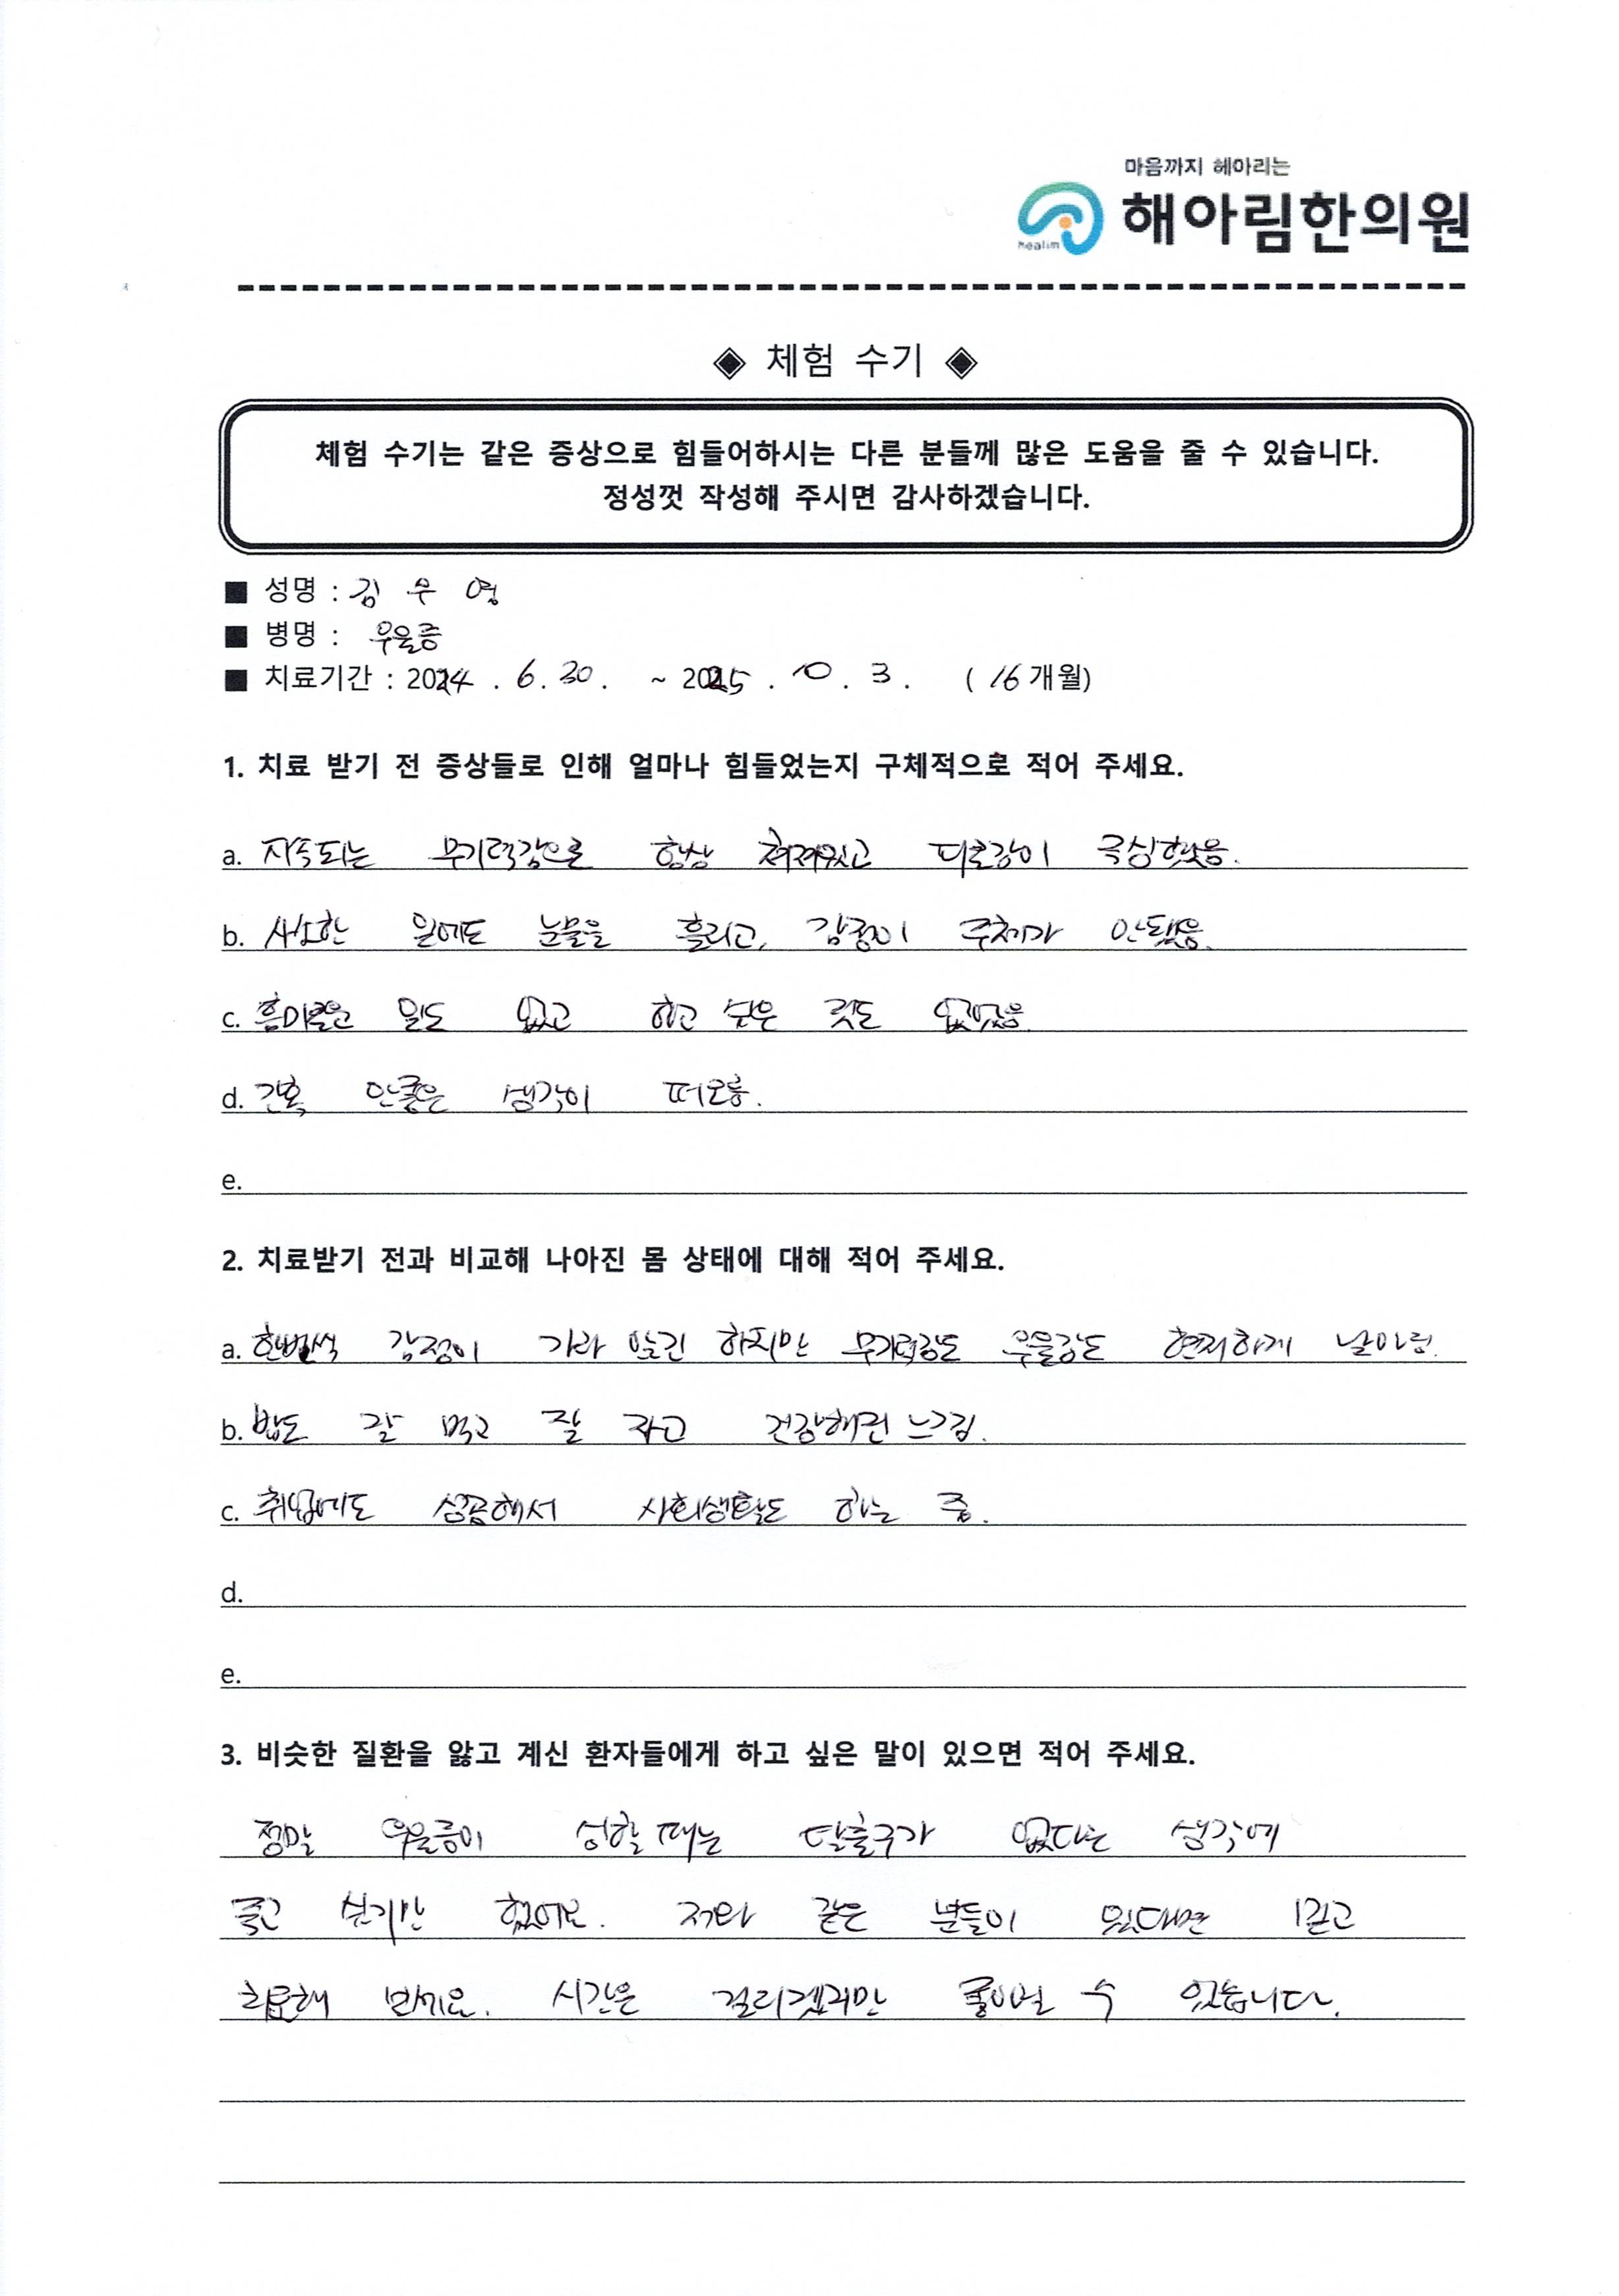 마음까지 헤아리는
healim
해아림한의원
◈ 체험 수기 ◈
체험 수기는 같은 증상으로 힘들어하시는 다른 분들께 많은 도움을 줄 수 있습니다.
정성껏 작성해 주시면 감사하겠습니다.
■ 성명 : 김 우 영
■ 병명 : 우울증
■ 치료기간 : 2024 . 6. 30. ~ 2025 . 10 . 3 . ( 16 개월)
1. 치료 받기 전 증상들로 인해 얼마나 힘들었는지 구체적으로 적어 주세요.
a. 지속되는 무기력감으로 항상 쳐져있고 피로감이 극심했음.
b. 사소한 일에도 눈물을 흘리고, 감정이 주체가 안됐음.
c. 흥미로운 일도 없고 하고 싶은 것도 없었음
d. 간혹 안좋은 생각이 떠오름.
e.
2. 치료받기 전과 비교해 나아진 몸 상태에 대해 적어 주세요.
a. 한번씩 감정이 가라 앉긴 하지만 무기력감도 우울감도 현저하게 날아감.
b. 밥도 잘 먹고 잘 자고 건강해진 느낌.
c. 취업에도 성공해서 사회생활도 하는 중.
d.
e.
3. 비슷한 질환을 앓고 계신 환자들에게 하고 싶은 말이 있으면 적어 주세요.
정말 우울증이 심할 때는 탈출구가 없다는 생각에
죽고 싶기만 했어요. 저와 같은 분들이 있다면 믿고
치료해 보세요. 시간은 걸리겠지만 좋아질 수 있습니다.